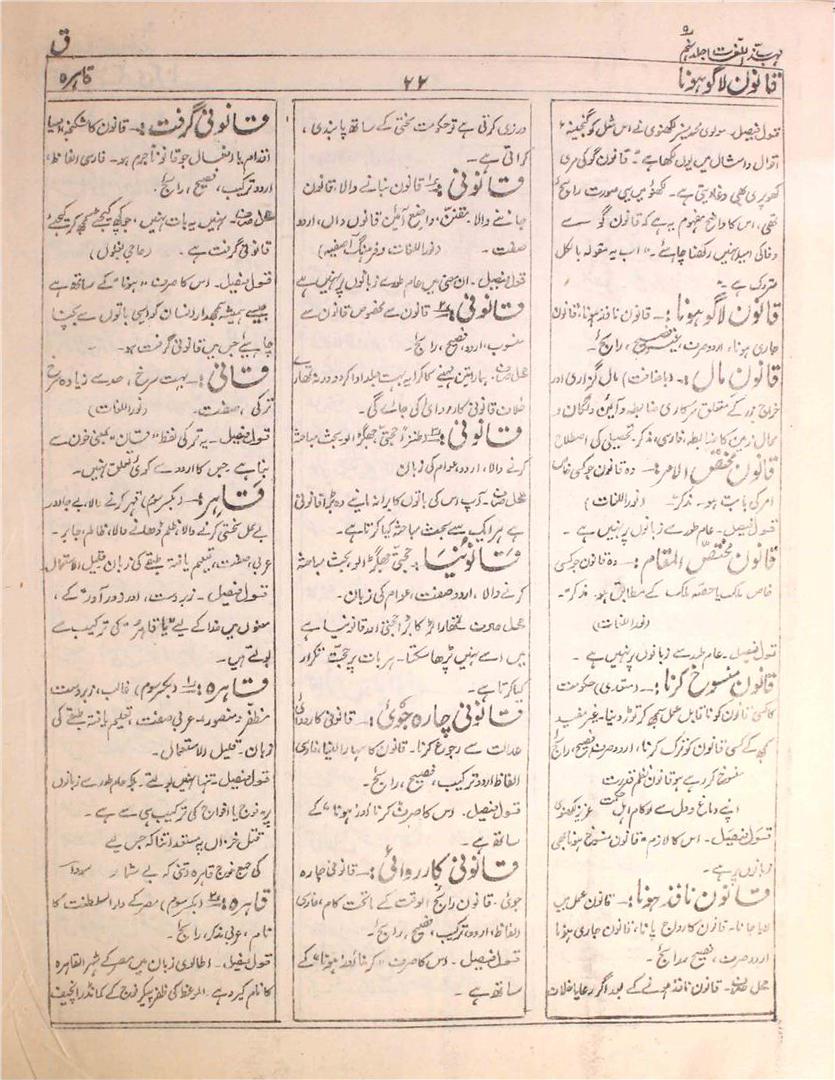 مہذب اللغات جلد نہم
ق
قانون لاگو ہونا
۲۲
قاہرہ
قول فیصل۔ مولوی محمد منیر لکھنوی نے اس مثل کو گنجینۂ
اقوال و امثال میں یوں لکھا ہے۔ "قانون گو کی مری
کھوپری بھی دغا دیتی ہے۔ لکھنؤ میں یہی صورت رائج
تھی، اس کا واضح مفہوم یہ ہے کہ قانون گو سے
وفا کی امید نہیں رکھنا چاہئے۔" اب یہ مقولہ بالکل
متروک ہے۔
قانون لاگو ہونا:۔ قانون نافذ ہونا، قانون
جاری ہونا، اردو صرف، غیر فصیح، رائج۔
قانون مال:۔ (باضافت) مال گزاری اور
خراج زر کے متعلق سرکاری ضابطہ و آئین و لگان و
محال زمین کا ضابطہ، فارسی، مذکر، تحصیلی کی اصطلاح
قانون مختص الامر:۔ وہ قانون جو کسی خاص
امر کی بابت ہو۔ مذکر۔ (نور اللغات)
قول فیصل۔ عام طور سے زبانوں پر نہیں ہے۔
قانون مختص المقام:۔ وہ قانون جو کسی
خاص ملک یا حصّہ ملک کے مطابق ہو۔ مذکر۔
(نور اللغات)
قول فیصل۔ عام طور سے زبانوں پر نہیں ہے۔
قانون منسوخ کرنا:۔ (متعدی) حکومت
کا کسی قانون کو ناقابل عمل سمجھ کر توڑ دینا۔ غیر مفید
سمجھ کے کسی قانون کو ترک کرنا، اردو صرف، فصیح، رائج
منسوخ کر رہے ہو قانون نظم قدرت
اپنے دماغ و دل سے لو کام اہل حکمت عزیز لکھنوی
قول فیصل۔ اس کا لازم "قانون منسوخ ہونا بھی
زبانوں پر ہے۔
قانون نافذ ہونا:۔ قانون عمل میں
لایا جانا۔ قانون کا رواج پانا، قانون جاری ہونا
اردو صرف، فصیح، رائج۔
محل صرف۔ قانون نافذ ہونے کے بعد اگر رعایا خلاف
ورزی کرتی ہے تو حکومت سختی کے ساتھ پابندی
کراتی ہے۔
قانونی:۔۱ قانون بنانے والا، قانون
جاننے والا، مقنن، واضع آئین، قانون داں، اردو
صفت۔ (نور اللغات و فرہنگ آصفیہ)
قول فیصل۔ ان معنی میں عام طور سے زبانوں پر نہیں ہے
قانونی:۔۲ قانون سے مخصوص، قانون سے
منسوب، اردو، فصیح، رائج۔
محل صرف۔ ہمارا تین مہینے کا کرایہ بہت جلد ادا کر دو ورنہ تمہارے
خلاف قانونی کارروائی کی جائے گی۔
قانونی:۔۳ (طنزاً) حجتی، جھگڑالو، بحث مباحثہ
کرنے والا، اردو، عوام کی زبان
محل صرف۔ آپ اس کی باتوں کا برا نہ مانیے وہ بڑا قانونی
ہے ہر ایک سے بحث مباحثہ کیا کرتا ہے۔
قانونیا:۔ حجتی، جھگڑالو، بحث مباحثہ
کرنے والا، اردو صفت، عوام کی زبان۔
محل صرف۔ تمہارا لڑکا بڑا حجتی اور قانونیا ہے
میں اسے نہیں پڑھا سکتا۔ ہر بات پر حجت تکرار
کیا کرتا ہے۔
قانونی چارہ جوئی:۔ قانونی کارروائی
عدالت سے رجوع کرنا۔ قانون کا سہارا لینا، فارسی
الفاظ، اردو ترکیب، فصیح، رائج۔
قول فیصل۔ اس کا صرف کرنا اور ہونا، کے
ساتھ ہے۔
قانونی کارروائی:۔ قانونی چارہ
جوئی۔ قانون رائج الوقت کے ماتحت کام، فارسی
الفاظ، اردو ترکیب، فصیح، رائج۔
قول فیصل۔ اس کا صرف "کرنا اور ہونا" کے
ساتھ ہے۔
قانونی گرفت:۔ قانون کا شکنجہ، ایسا
اقدام یا افعال جو قانوناً جرم ہو۔ فارسی الفاظ،
اردو ترکیب، فصیح، رائج۔
محل صرف۔ نہیں نہیں یہ بات نہیں، جو کچھ کیجئے سمجھ کر کیجئے
قانونی گرفت ہے۔ (حاجی بغلول)
قول فیصل۔ اس کا صرف "ہونا" کے ساتھ ہے
جیسے ہمیشہ سمجھدار انسان کو ایسی باتوں سے بچنا
چاہئے جس میں قانونی گرفت ہو۔
قانی:۔ بہت سرخ، حد سے زیادہ سرخ
ترکی، صفت۔ (نور اللغات)
قول فیصل۔ یہ ترکی لفظ "قان" بمعنی خون سے
بنا ہے جس کا اردو سے کوئی تعلق نہیں۔
قاہر:۔ (بکسر سوم) قہر کرنے والا، بے جا اور
بے محل سختی کرنے والا، ظلم ڈھانے والا، ظالم، جابر۔
عربی، صفت، تعلیم یافتہ طبقے کی زبان، قلیل الاستعمال
قول فیصل۔ زبردست، اور زور آور کے،
معنوں میں خدا کے لیے "یا قاہر" کی ترکیب سے
بولتے ہیں۔
قاہرہ:۔۱ (بکسر سوم) غالب، زبردست
مظفر و منصور۔ عربی، صفت، تعلیم یافتہ طبقے کی
زبان۔ قلیل الاستعمال۔
قول فیصل۔ تنہا نہیں بولتے۔ بلکہ عام طور سے زبانوں
پر فوج یا افواج کی ترکیب ہی سے ہے۔
قتل خزاں پہ مستعد اتنا کہ جس لیے
کی جمع فوج قاہرہ اتنی کہ بے شمار سودا
قاہرہ:۔۲ (بکسر سوم) مصر کے دار السلطنت کا
نام، عربی، مذکر، رائج۔
قول فیصل۔ اطالوی زبان میں مصر کے شہر القاہرہ
کا نام کیرو ہے۔ المعز کی ظفر پیکر فوج کے کمانڈر انچیف